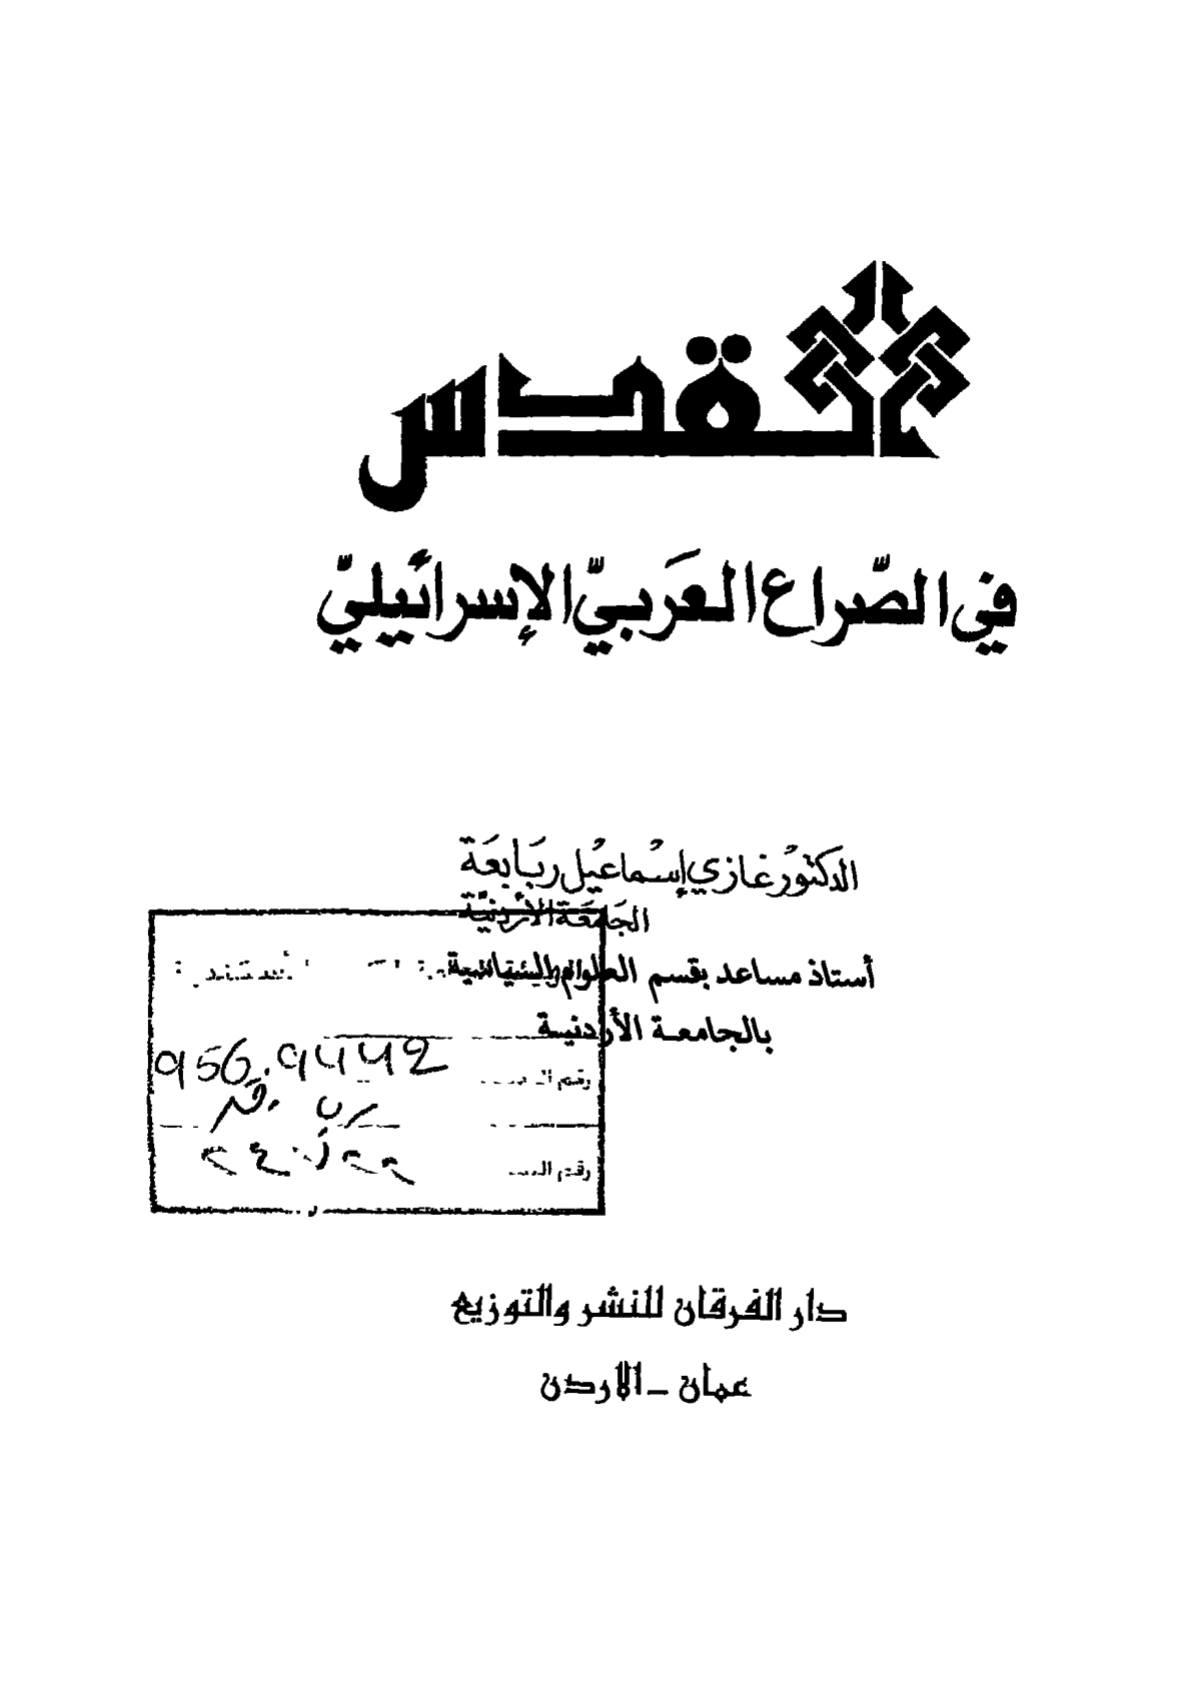 القدس
في الصّراع العَربيّ الإسرائيليّ
الدكتور غازي إسماعيل ربَابعَة
الجَامعَة الأردنيَّة
أستاذ مساعد بقسم العلوم السياسية
بالجامعة الأردنية
956.9442
رقم
رقم
دار الفرقان للنشر والتوزيع
عمان - الاردن